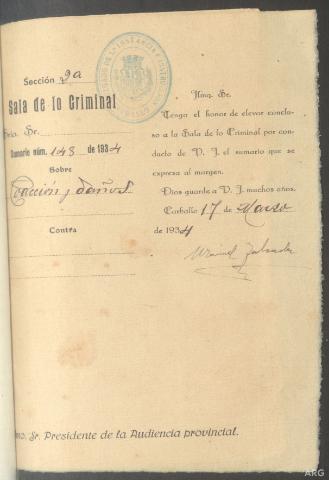 Sección 2a
Sala de lo Criminal
Sr.
Sumario núm. 143 de 1934
Sobre
Coacción y daños
Contra
Ilmo. Sr.
Tengo el honor de elevar conclu-
so a la Sala de lo Criminal por con-
ducto de V. I. el sumario que se
expresa al margen.
Dios guarde a V. I. muchos años.
Carballo 17 de Marzo
de 1934
Sr. Presidente de la Audiencia provincial.
ARG